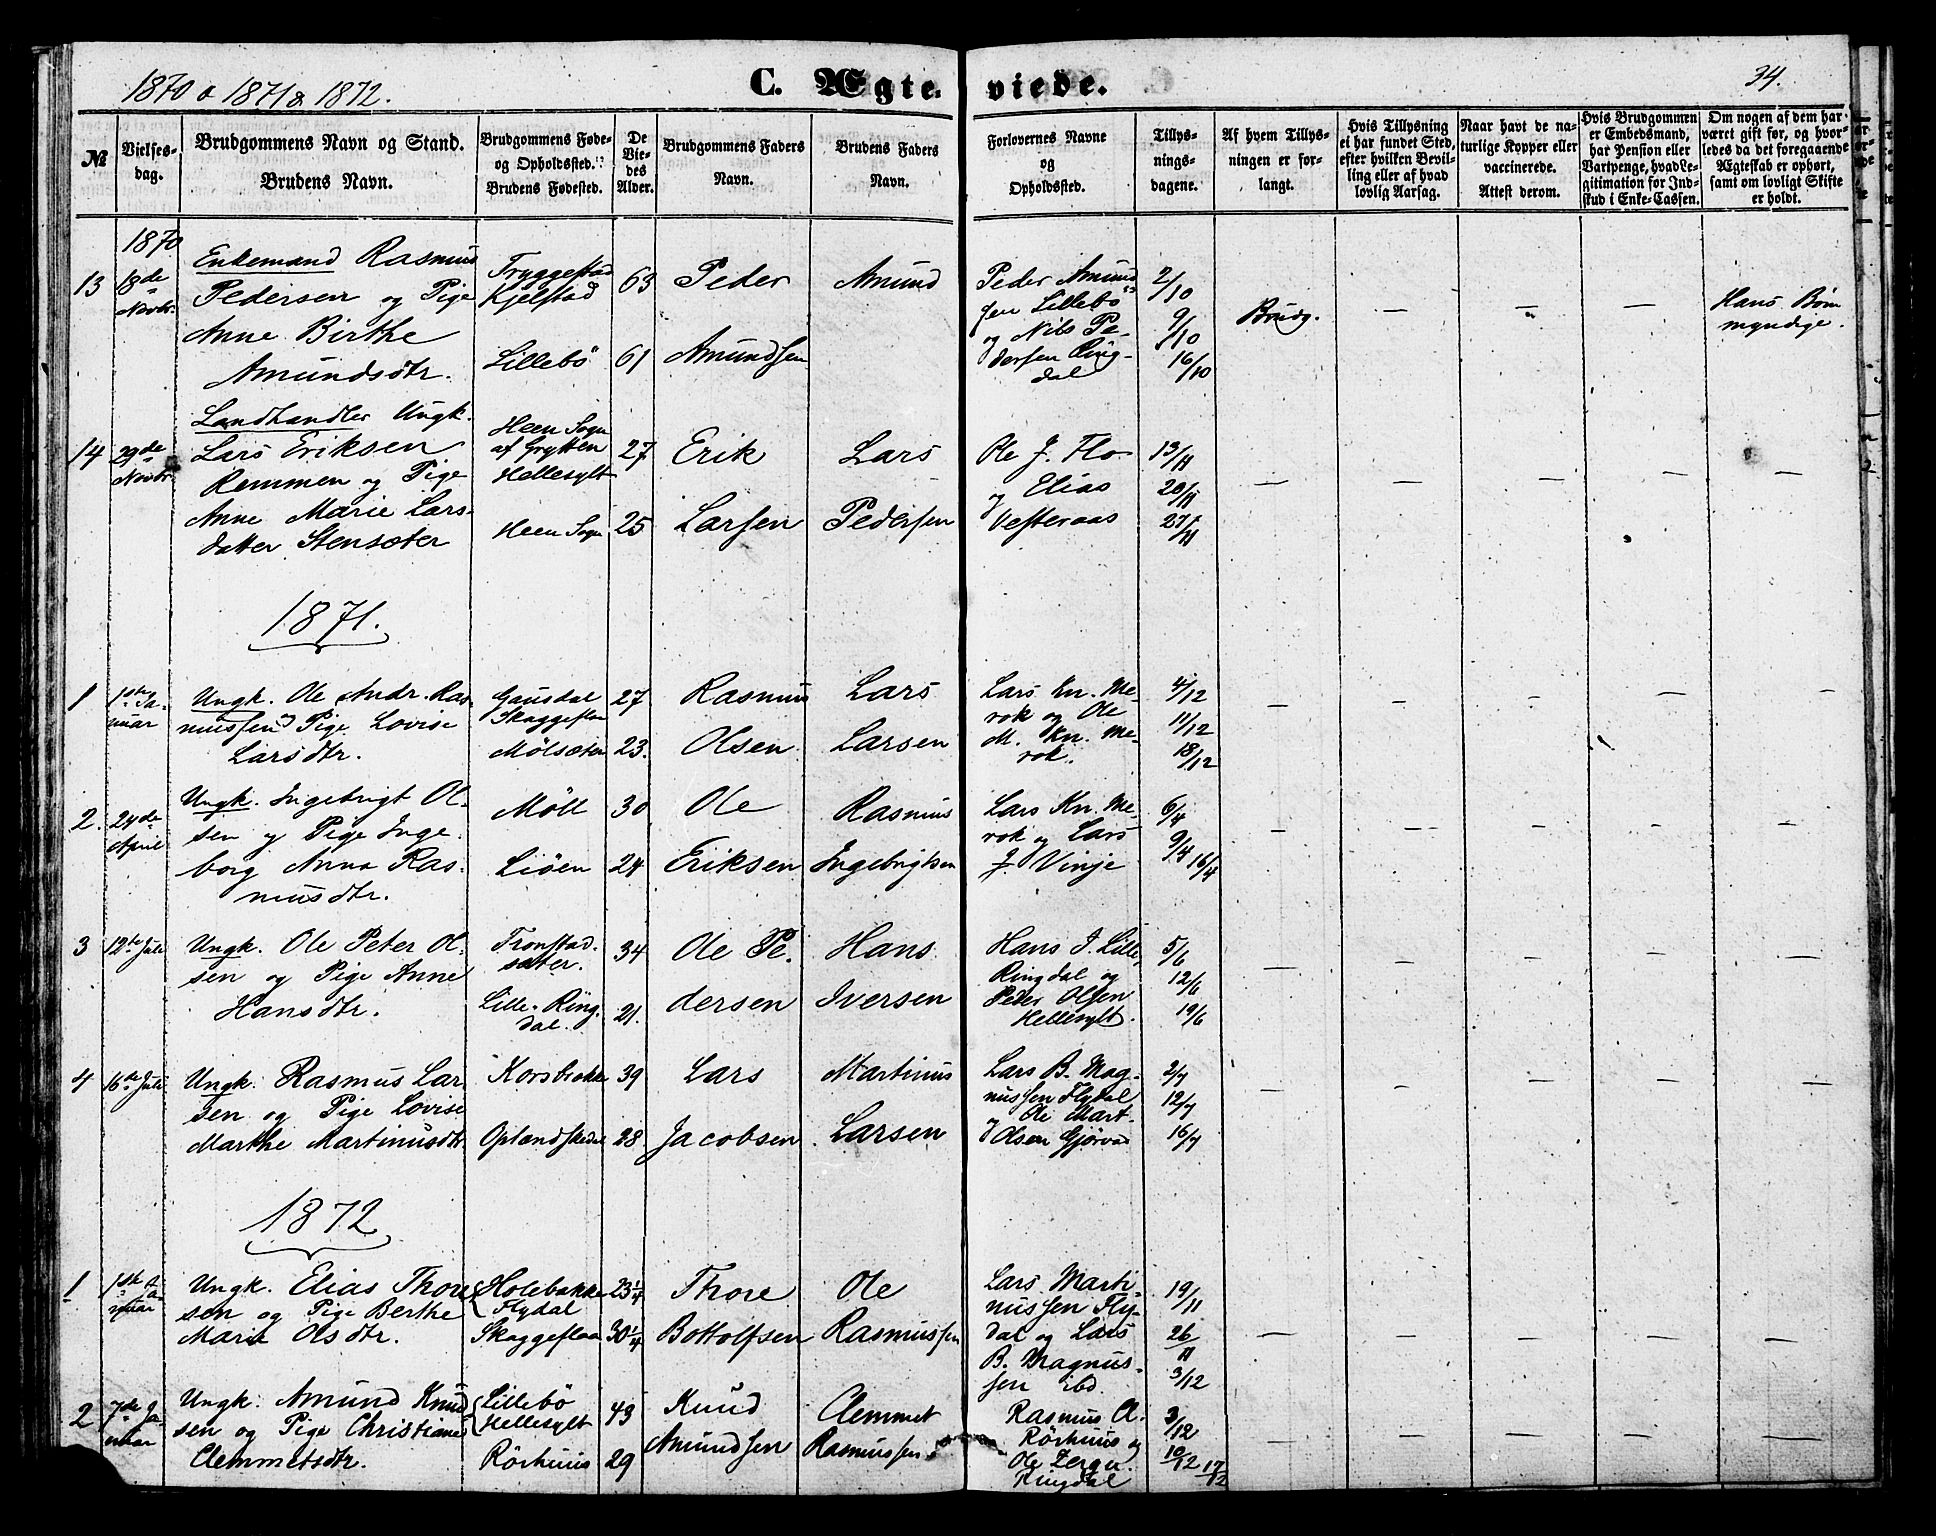 1870 & 1871 & 1872.
C. Ægteviede.
34.
№
Vielses-
dag.
Brudgommens Navn og Stand.
Brudens Navn.
Brudgommens Føde-
og Opholdssted.
Brudens Fødested.
De
Vie-
des
Alder.
Brudgommens Faders
Navn.
Brudens Faders
Navn.
Forlovernes Navne
og
Opholdssted.
Tillys-
nings-
dagene.
Af hvem Tillys-
ningen er for-
langt.
Hvis Tillysning
ei har fundet Sted,
efter hvilken Bevil-
ling eller af hvad
lovlig Aarsag.
Naar havt de na-
turlige Kopper eller
vaccinerede.
Attest derom.
Hvis Brudgommen
er Embedsmand,
har Pension eller
Vartpenge, hvad Le-
gitimation for Ind-
skud i Enke-Cassen.
Om nogen af dem har
været gift før, og hvor-
ledes da det foregaaende
Ægteskab er ophørt,
samt om lovligt Skifte
er holdt.
1870
13
18de
Novbr.
Enkemand Rasmus
Pedersen og Pige
Anne Birthe
Amundsdtr.
Tryggestad
Kjelstad
Lillebö
63
61
Peder
Amundsen
Amund
Peder Amund
sen Lillebö
og Nils Pe-
dersen Ring-
dal
2/10
9/10
16/10
Brudg.
—
—
—
Hans Börn
myndige.
14
29de
Novbr.
Landhandler Ungk.
Lars Eriksen
Remmen og Pige
Anne Marie Lars-
datter Stensæter
Heen Sogn
af Grytten
Hellesylt
Heen Sogn
27
25
Erik
Larsen
Lars
Pedersen
Ole J. Flo
og Elias
Vesteraas
13/11
20/11
27/11
—
—
—
—
—
1871.
1
1ste Ja-
nuar
Ungk. Ole Andr. Ras-
mussen og Pige Lovise
Larsdtr.
Gausdal
Skaggeflaa
Mölsæter
27
23.
Rasmus
Olsen
Lars
Larsen
Lars Kn. Me-
rok og Ole
M. Kn. Me-
rok.
4/12
11/12
18/12
—
—
—
—
—
2.
24de
April
Ungk. Ingebrigt Ol-
sen og Pige Inge-
borg Anna Ras-
musdtr.
Möll
Liöen
30
24
Ole
Eriksen
Rasmus
Ingebrigtsen
Lars Kn. Me-
rok og Lars
J. Vinje
6/4
9/4 16/4
—
—
—
—
—
3
12te Juli
Ungk. Ole Peter Ol-
sen og Pige Anne
Hansdtr.
Tronstad-
sæter.
Lille-Ring-
dal.
34
21.
Ole Pe-
dersen
Hans
Iversen
Hans I. Lille-
Ringdal og
Peter Olsen
Hellesylt.
5/6
12/6
19/6
—
—
—
—
—
4
16te Juli
Ungk. Rasmus Lar-
sen og Pige Lovise
Marthe Martinusdtr
Korsbrekke
Oplendskedal
39
28.
Lars
Jacobsen
Martinus
Larsen
Lars B. Mag-
nussen Flydal
Ole Mart.
Olsen Gjörva
2/7
12/7
16/7
—
—
—
—
—
1872
1
1ste Ja-
nuar
Ungk. Elias Thore
sen og Pige Berthe
Maria Olsdtr.
Holebakke
Flydal
Skaggeflaa
23 1/4
30 1/4
Thore
Bottolfsen
Ole
Rasmussen
Lars Marti-
nussen Fly-
dal og Lars
B. Magnus-
sen Ebd.
19/11
26/11
3/12
—
—
—
—
—
2
7de Ja-
nuar
Ungk. Amund Knud
sen og Pige Christiane
Clemmetsdtr.
Lillebö
Hellesylt
Rörhuus
43
29
Knud
Amundsen
Clemmet
Rasmussen
Rasmus A.
Rörhuus og
Ole
Ringdal
3/12
10/12 17/12
—
—
—
—
—